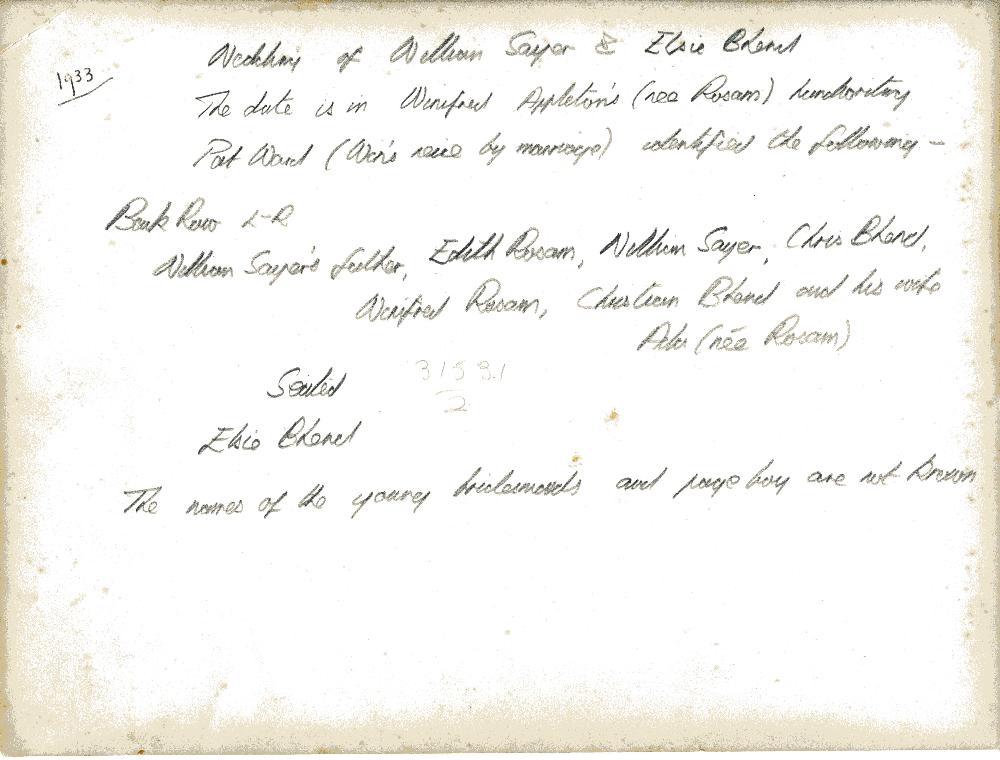 Wedding of William Sayer & Elsie Bhend
1933
The date is in Winifred Appleton's (nee Rosam) handwriting
Pat Ward (Win's neice by marriage) identified the following –
Back Row L-R
William Sayer's father, Edith Rosam, William Sayer, Chris Bhend,
Winifred Rosam, Christian Bhend and his wife
Ada (née Rosam)
Seated
3159.1
2
Elsie Bhend
The names of the young bridesmaids and page boy are not known